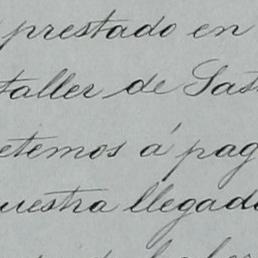 prestado en
taller de Sast
etemos á pag
uestra llegada